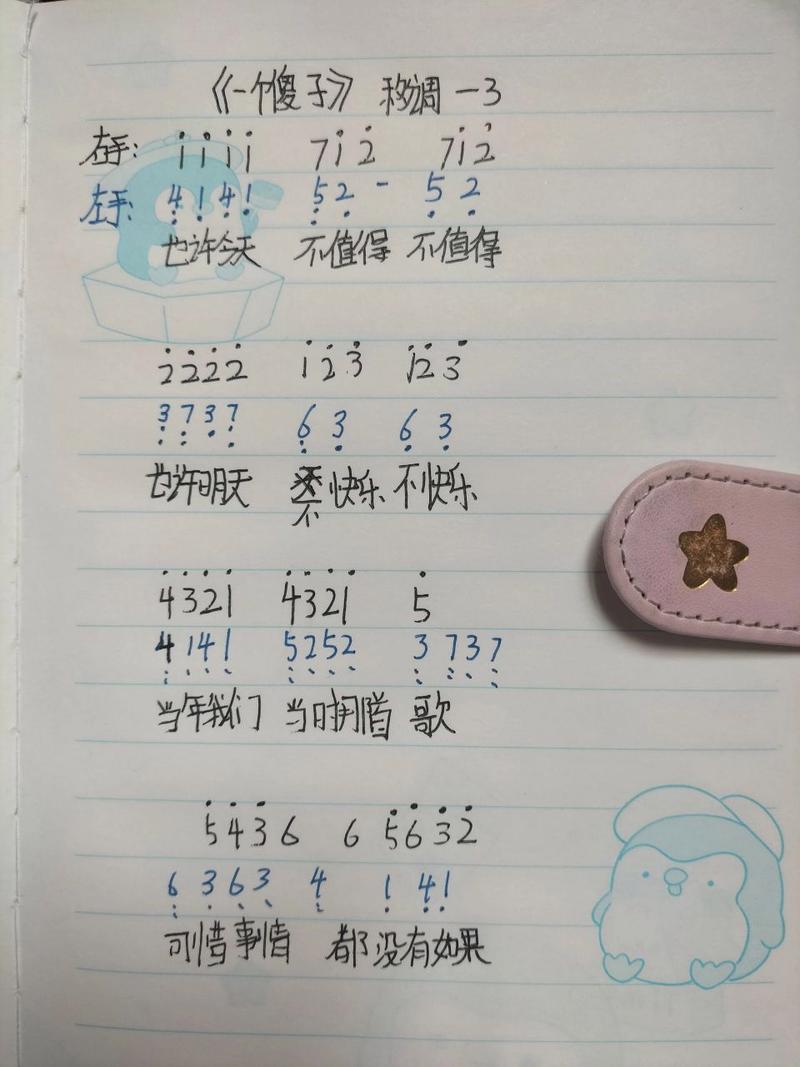 《一个傻子》 移调 -3
右手: i i i i 7 i 2̇ 7 i 2̇
左手: 4 1 4 1 5 2 - 5 2
也许今天 不值得 不值得
2̇ 2̇ 2̇ 2̇ i 2̇ 3̇ i 2̇ 3̇
3 7 3 7 6 3 6 3
也许明天 不快乐 不快乐
4̇ 3̇ 2̇ i 4̇ 3̇ 2̇ i 5̇
4 1 4 1 5 2 5 2 3 7 3 7
当年我们 当时拥 歌
5̇ 4̇ 3̇ 6 6 5̇ 6̇ 3̇ 2̇
6 3 6 3 4 1 4 1
可惜事情 都没有如果